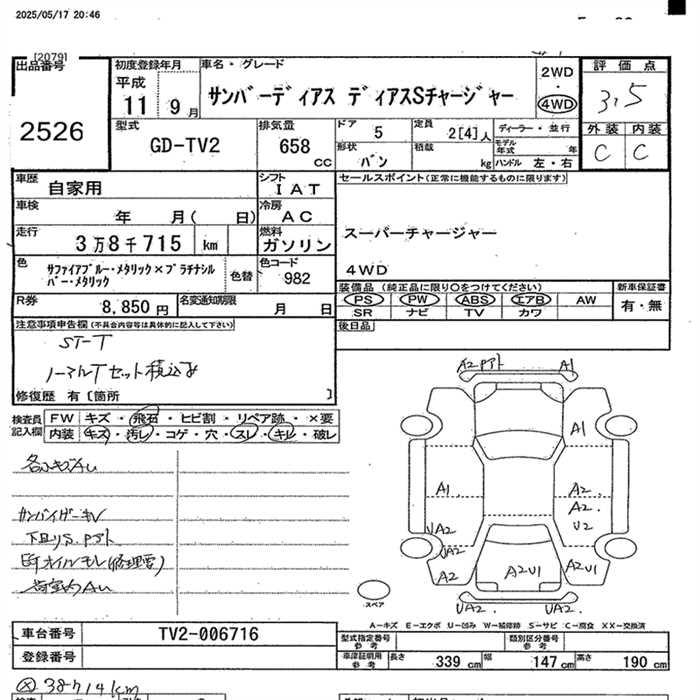 2025/05/17 20:46
[2079]
出品番号
2526
初度登録年月
平成
11 9月
車名・グレード
サンバーディアス ディアスSチャージャー
2WD
・
4WD
評価点
3.5
外装 内装
C C
型式
GD-TV2
排気量
658
cc
ドア 5
定員 2[4]人
形状 バン
積載 kg
ディーラー・並行
モデル年式 年
ハンドル 左・右
車歴 自家用
シフト IAT
車検 年 月( 日)
冷房 AC
走行 3万8千715 km
燃料 ガソリン
色 サファイアブルー・メタリック×プラチナシルバー・メタリック
色替
色コード 982
R券 8,850円
名変通知期限 月 日
セールスポイント(正常に機能するものに限ります)
スーパーチャージャー
4WD
装備品(純正品に限り○をつけてください)
PS PW ABS エアB AW
SR ナビ TV カワ
新車保証書
有・無
後日品
注意事項申告欄(不具合内容等は具体的に記入して下さい)
ST-T
ノーマルTセット積込み
修復歴 有〔箇所 〕
検査員記入欄
FW キズ・飛石・ヒビ割・リペア跡・×要
内装 キズ・汚レ・コゲ・穴・スレ・キレ・破レ
各小キズAu
サンバイザーキレ
下回りS.Pアト
荷室内Au
A2Pアト
A1
A1
A1.
A2.
A2.
U2
UA2
UA2
A2
A2U1
A2U1
UA2.
UA2.
スペア
A-キズ E-エクボ U-凹み W-補修跡 S-サビ C-腐食 XX-交換済
車台番号 TV2-006716
登録番号
型式指定番号参考
類別区分番号参考
車庫証明用参考
長さ 339cm
幅 147cm
高さ 190cm
38714km